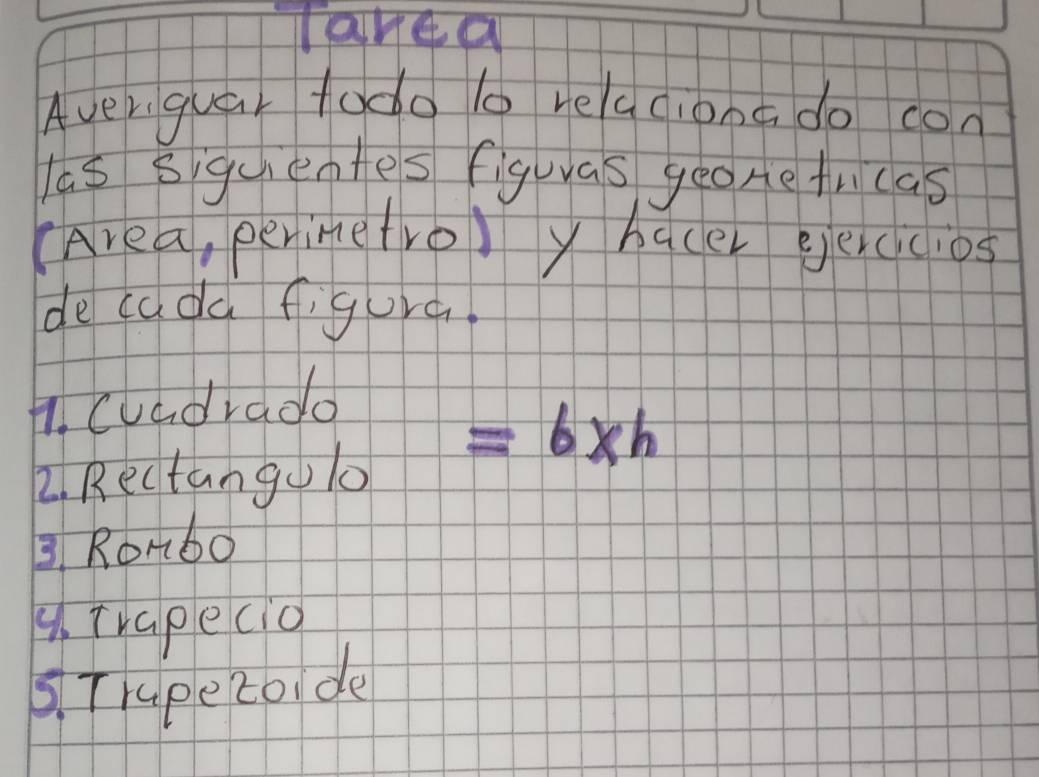 Tarea
Averiguar todo lo relacionado con
las siguientes figuras geometricas
(Area, perimetro) y hacer ejercicios
de cada figura.
1. Cuadrado
= b x h
2. Rectangulo
3. Rombo
4. Trapecio
5. Trapezoide